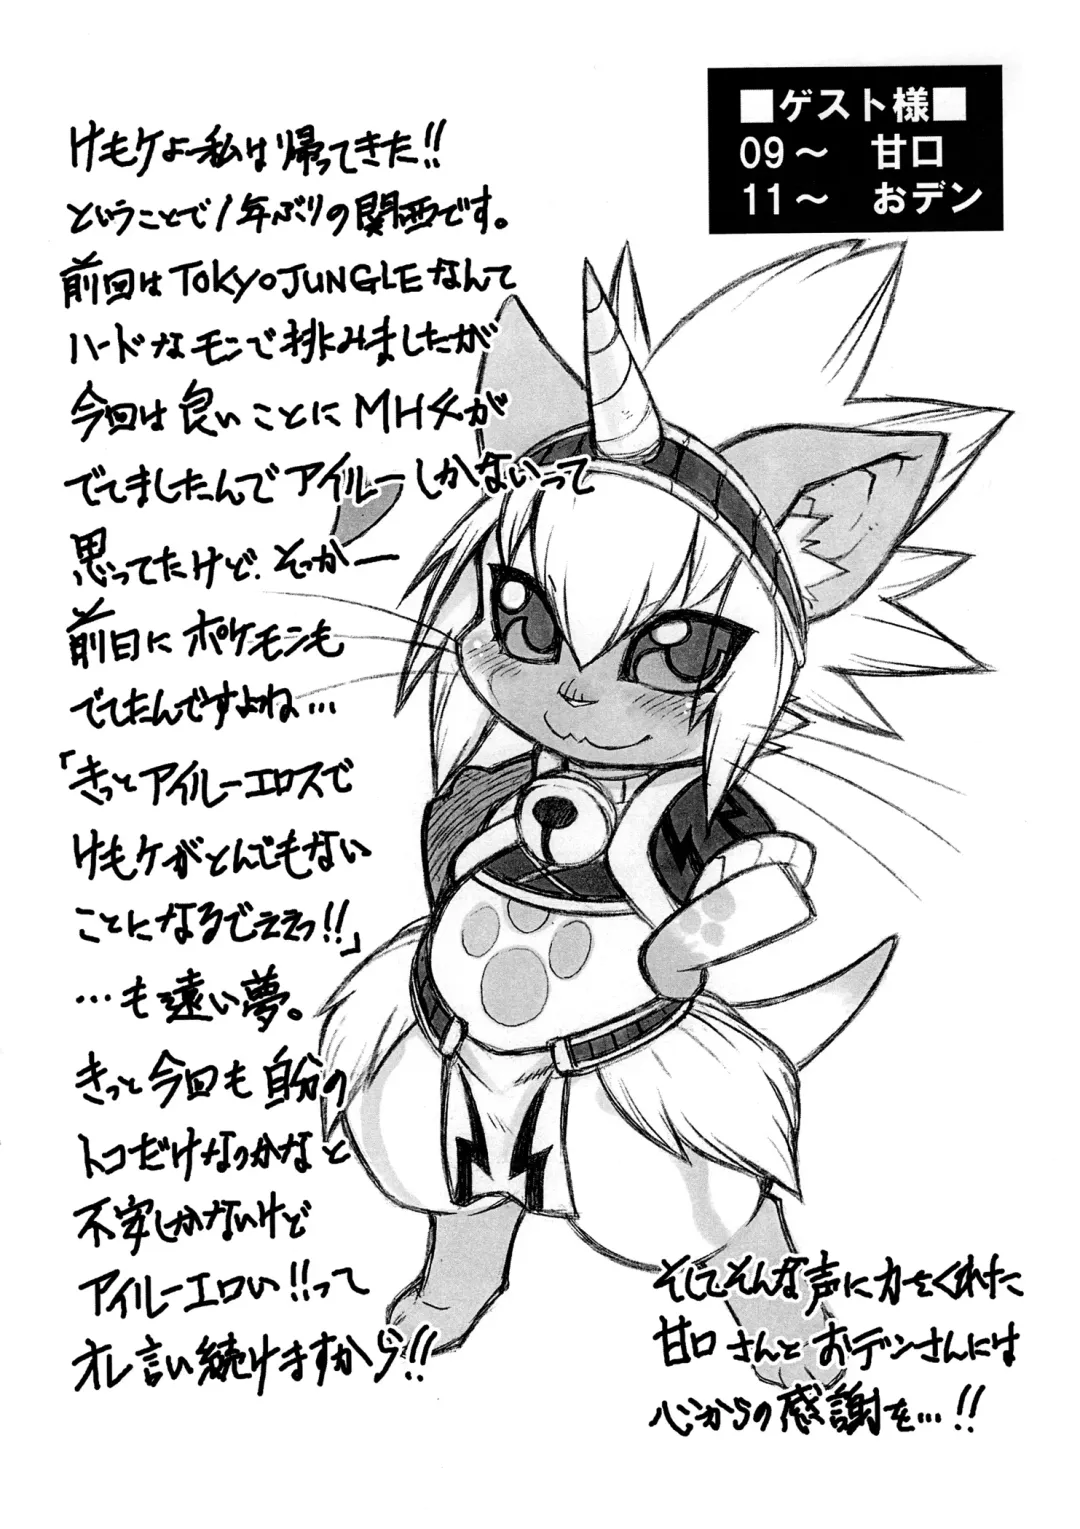 ■ゲスト様■
09～　甘口
11～　おデン
けもケよー私は帰ってきた!!
ということで1年ぶりの関西です。
前回はTOKYO JUNGLEなんて
ハードなモンで挑みましたが
今回は良いことにMH4が
でてましたんでアイルーしかないって
思ってたけど、そっかー
前日にポケモンも
でてたんですよね…
「きっとアイルーエロスで
けもケがとんでもない
ことになるでええっ!!」
…も遠い夢。
きっと今回も自分の
トコだけなっかなと
不安しかないけど
アイルーエロい!!って
オレ言い続けますから!!
そしてそんな声に力をくれた
甘口さんとおデンさんには
心からの感謝を…!!